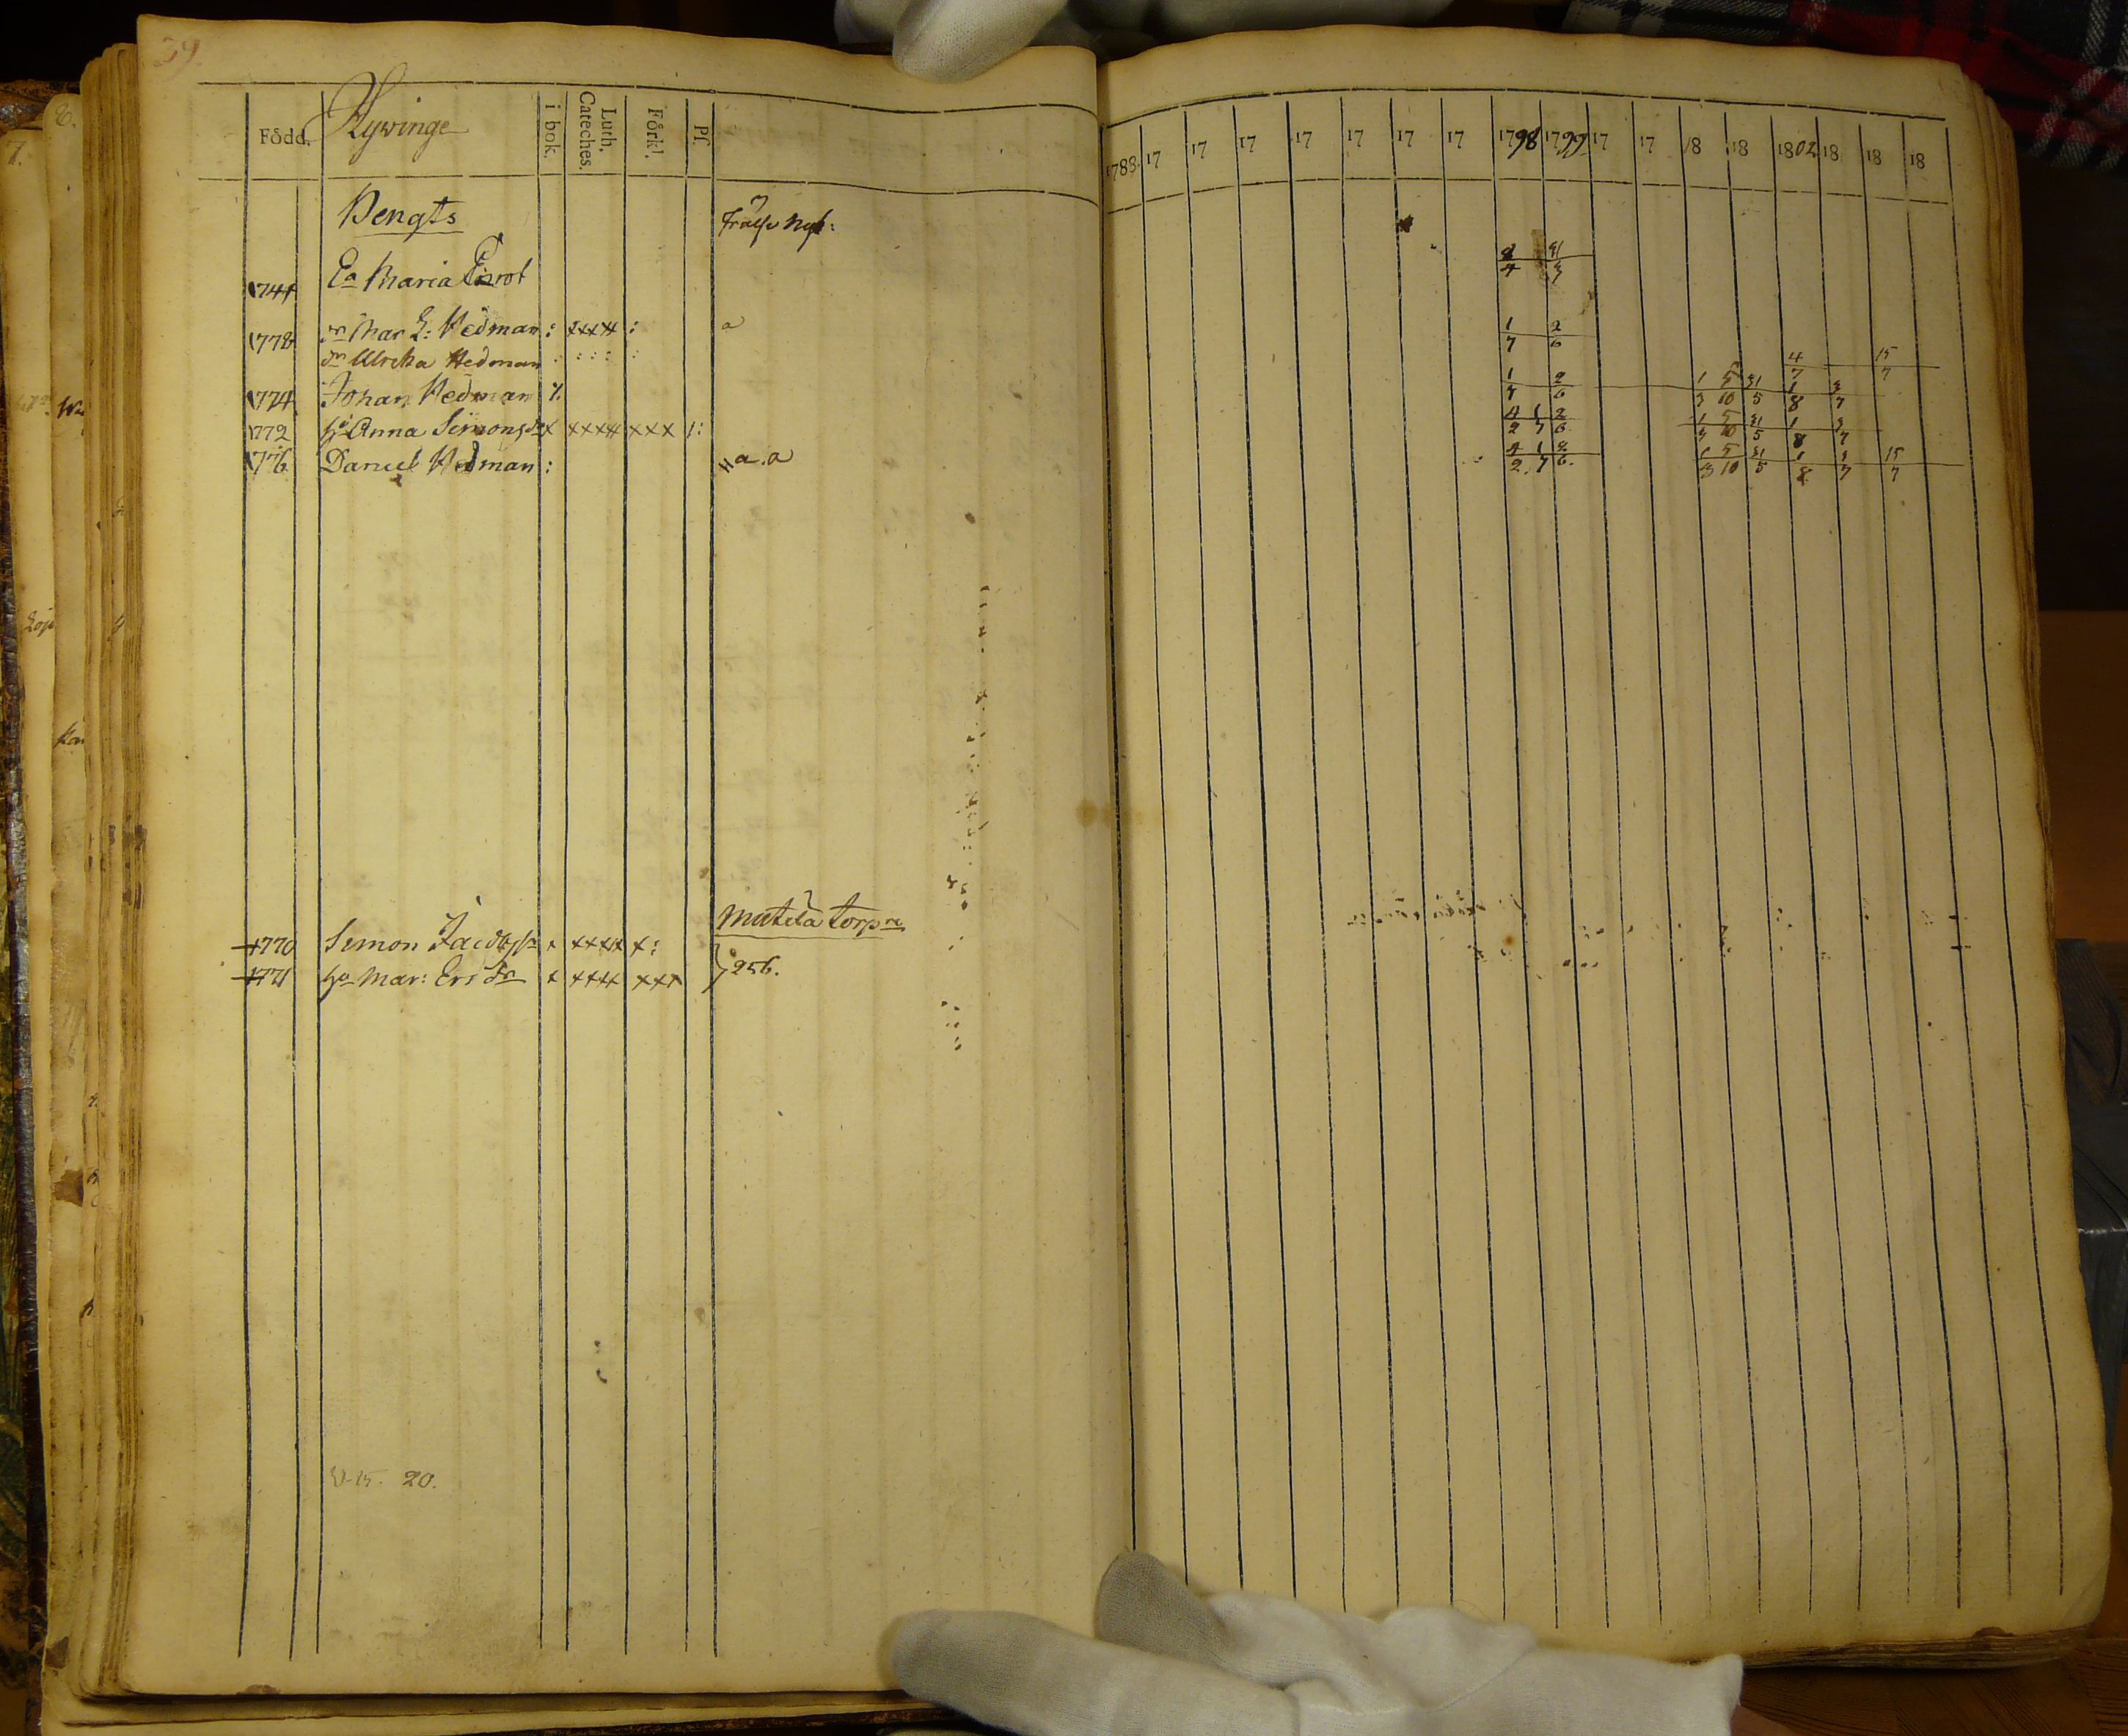 39.
Född. Kywinge i bok. Luth. Cateches. Förkl. Pſ. 1788. 17 17 17 17 17 17 17 1798 1799 17 17 18 18 1802 18 18 18
Bengts Frälse Nyb:
Ea Maria
1778 Mar L: Hedman : a 1/7 2/6
dr Ulrica Hedman 4/7 15/7
1774 Johan Hedman 1/7 2/6 1/3 5/10 31/5 1/8 3/7
1772 Anna Simonsdr x xxxx xxx 4/2 1/7 2/6 1/3 5/10 31/5 1/8 3/7
1776 Daniel Hedman : a. a 4/2 1/7 2/6 1/3 5/10 31/5 1/8 3/7 15/7
Mutila torp
1770 Simon Jacobss x xxxx x:
1771 Mar: Ersdr x xxxx xxx 256.
20.